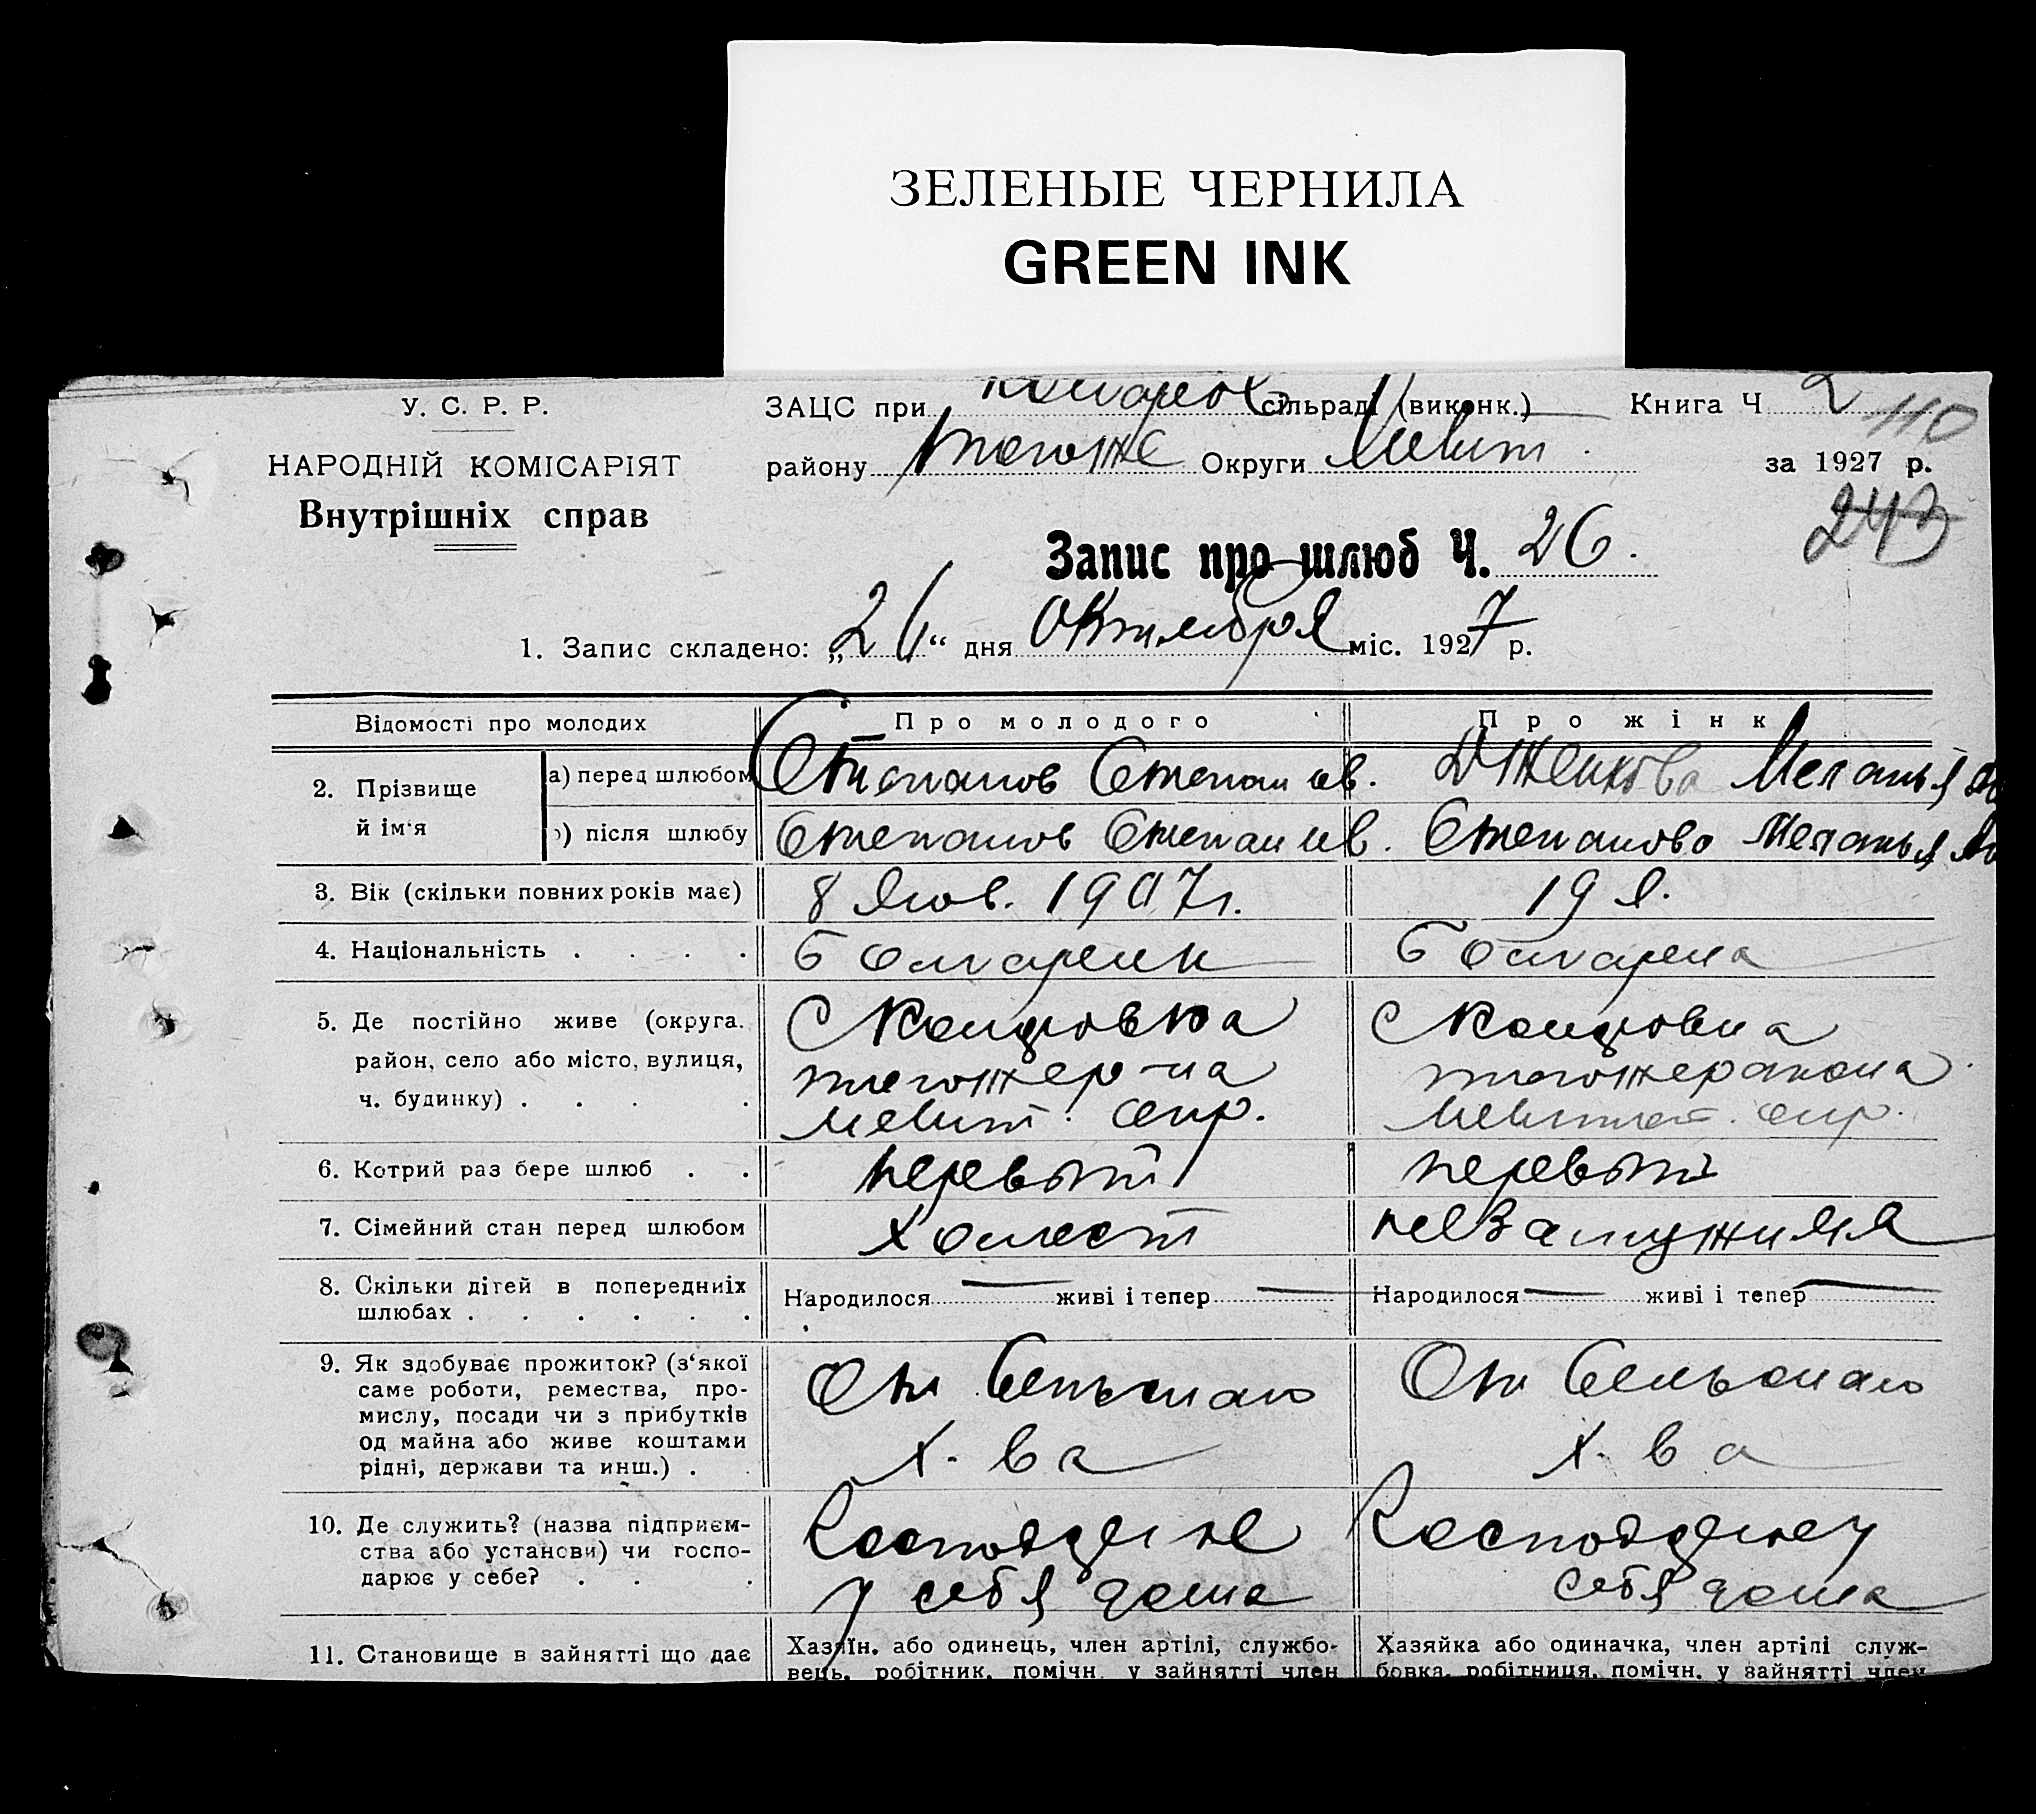 ЗЕЛЕНЫЕ ЧЕРНИЛА
GREEN INK
У. С. Р. Р.
НАРОДНІЙ КОМІСАРІЯТ
Внутрішніх справ
ЗАЦС при сільраді (виконк.)
Книга Ч 2
110
району Округи Мелит.
за 1927 р.
243
Запис про шлюб Ч. 26.
1. Запис складено: „26“ дня Октября міс. 1927 р.
Відомості про молодих Про молодого Про жінк
2. Прізвище й ім‘я
а) перед шлюбом Степанов Степан Ив. Меланья
б) після шлюбу Степанов Степан Ив. Степанова Меланья
3. Вік (скільки повних років має) 8 Янв. 1907 г. 19 л.
4. Національність . . . . Болгарин Болгарка
5. Де постійно живе (округа.
район, село або місто, вулиця,
ч. будинку) . . . .
Мелит. окр.
окр.
6. Котрий раз бере шлюб . . первый первый
7. Сімейний стан перед шлюбом холост незамужняя
8. Скільки дітей в попередниіх
шлюбах . . . . . .
Народилося — живі і тепер —
Народилося — живі і тепер —
9. Як здобуває прожиток? (з‘якої
саме роботи, ремества, про-
мислу, посади чи з прибутків
од майна або живе коштами
рідні, держави та инш.) . .
От Сельскаго
х-ва
От Сельскаго
х-ва
10. Де служить? (назва підприєм-
ства або установи) чи госпо-
дарює у себе? . . .
у себя дома
себя дома
11. Становище в зайнятті що дає
Хазяїн. або одинець, член артілі, службо-
вець, робітник, помічн. у зайнятті член
Хазяйка або одиначка, член артілі служ-
бовка, робітниця, помічн. у зайнятті член